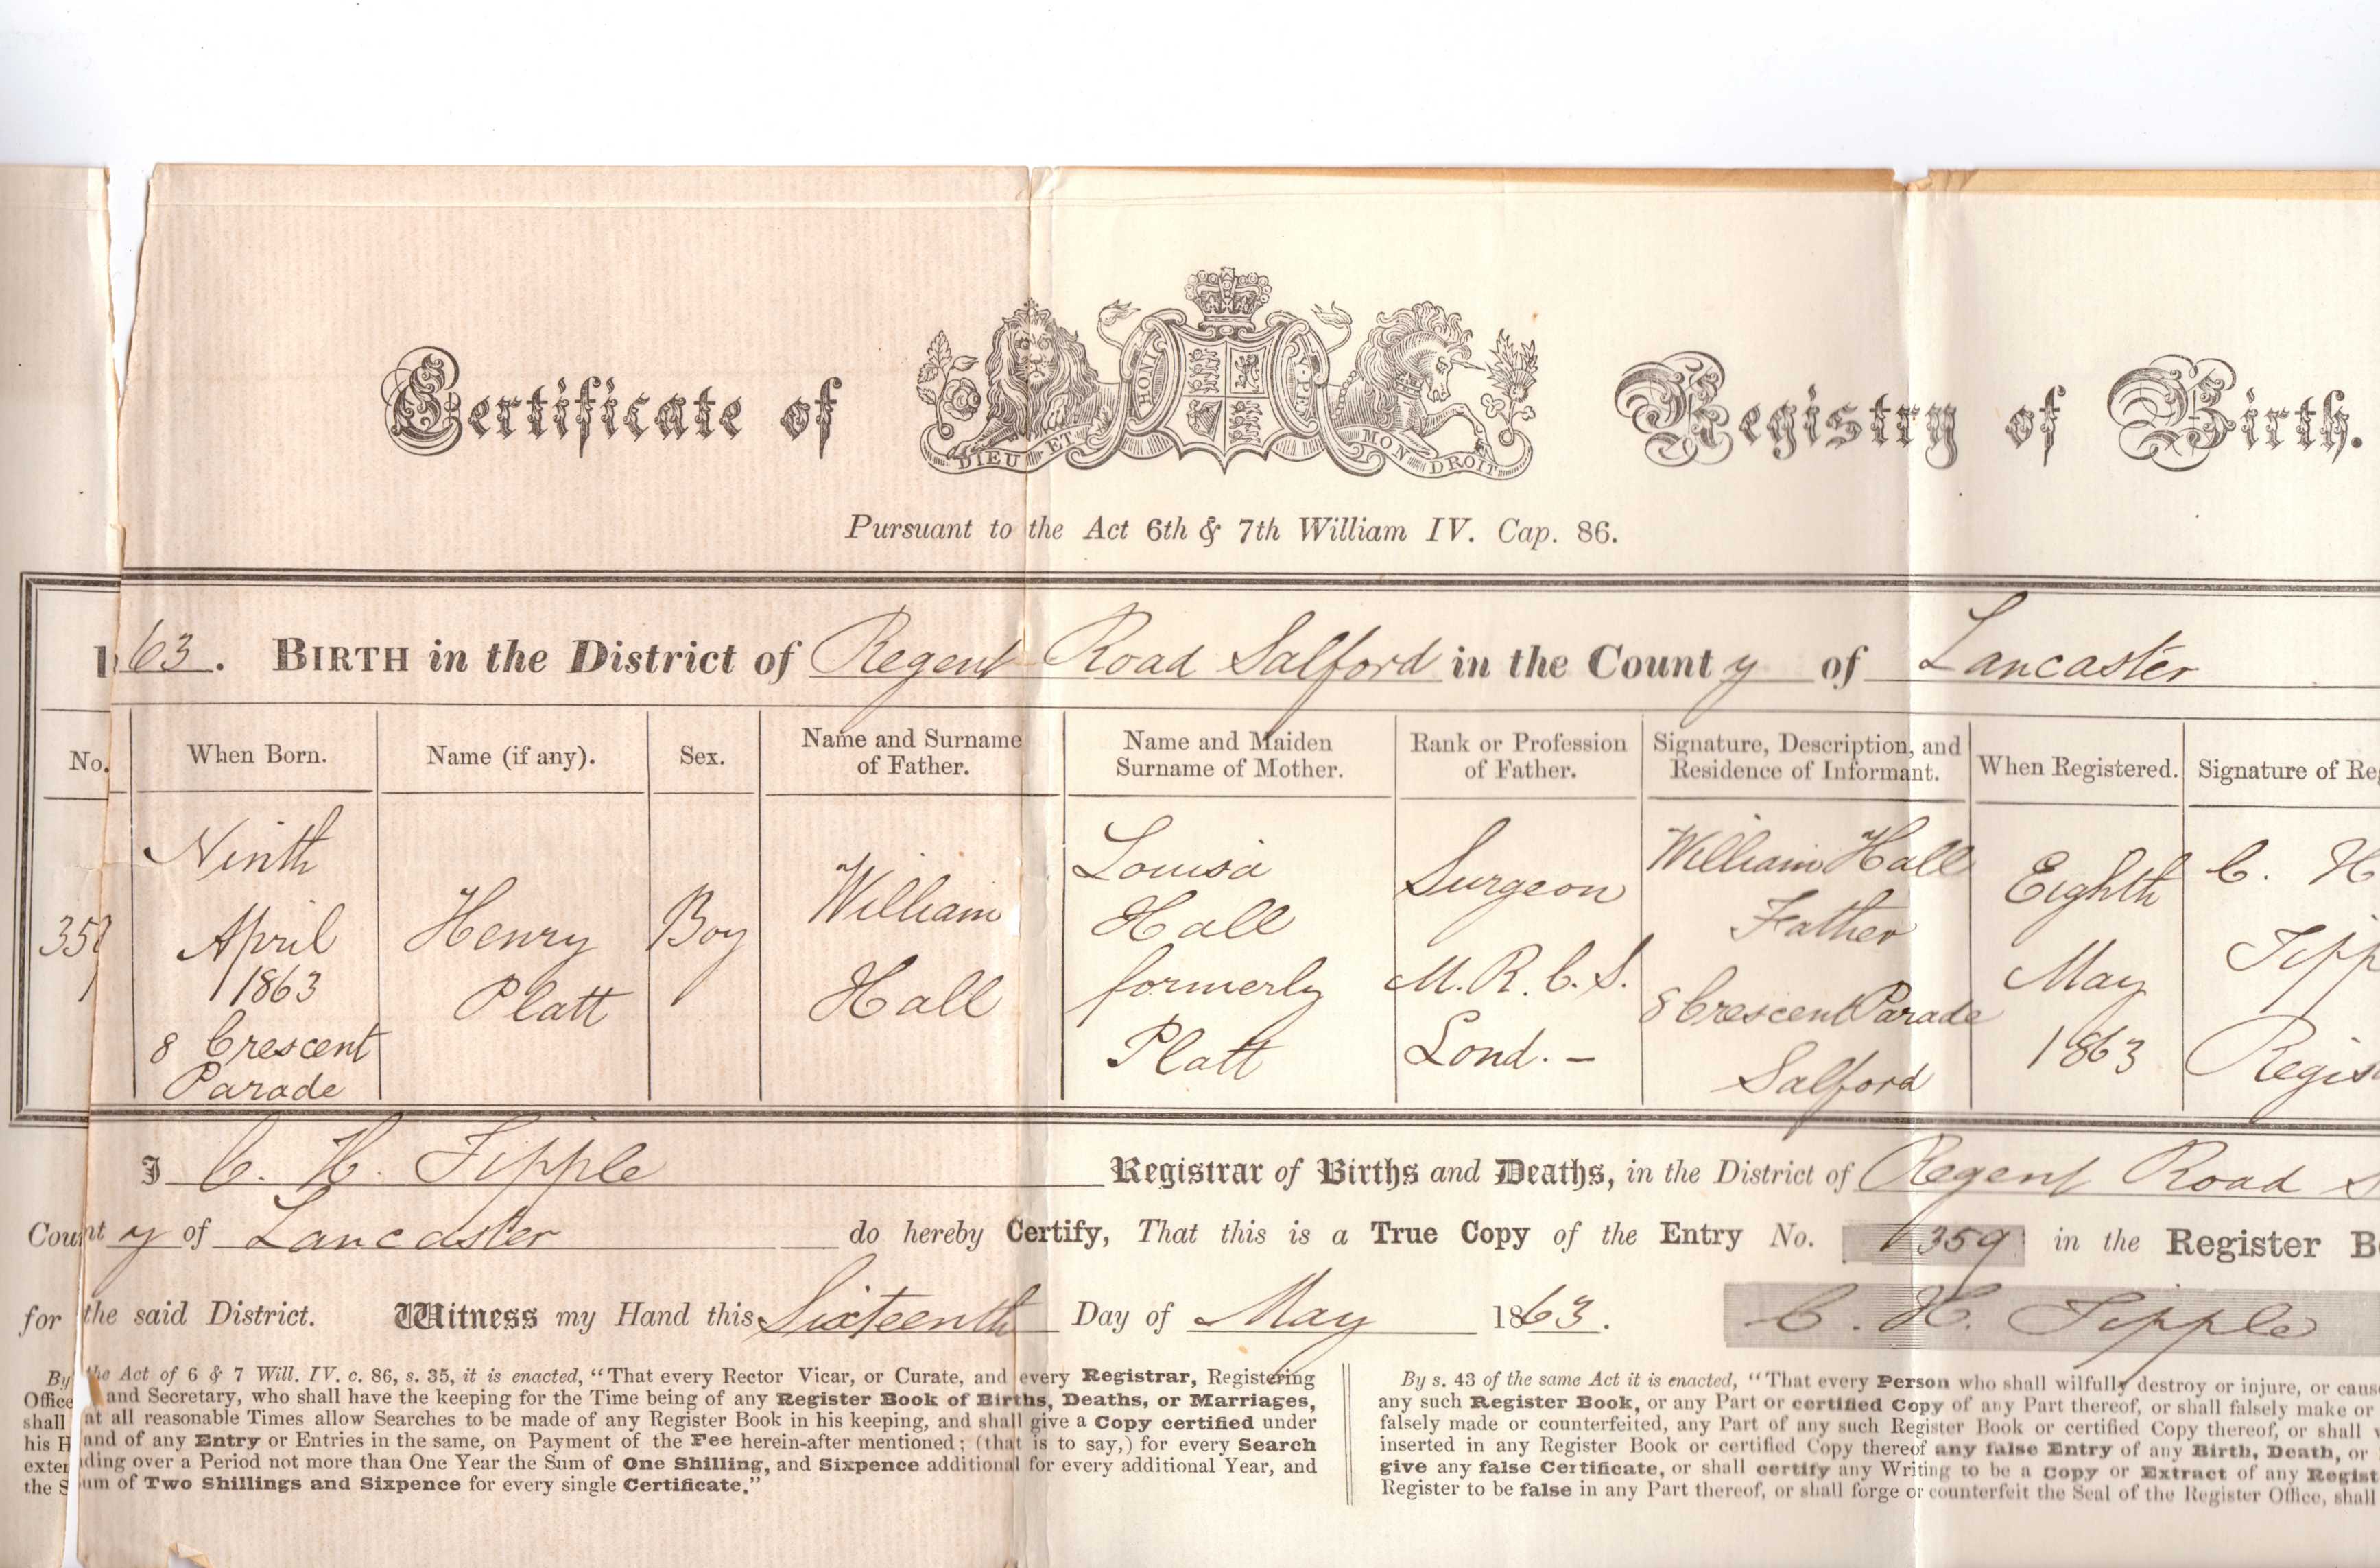 Certificate of Registry of Birth.
HONI
Y PEN
DIEU ET MON DROIT
Pursuant to the Act 6th & 7th William IV. Cap. 86.
63. BIRTH in the District of Regent Road Salford in the County of Lancaster
No. When Born. Name (if any). Sex. Name and Surname of Father. Name and Maiden Surname of Mother. Rank or Profession of Father. Signature, Description, and Residence of Informant. When Registered. Signature of Re
359
Ninth
April
1863
8 Crescent
Parade
Henry
Platt
Boy
William
Hall
Louisa
Hall
formerly
Platt
Surgeon
M.R.C.S.
Lond. -
William Hall
Father
8 Crescent Parade
Salford
Eighth
May
1863
C. H
Tipp
Regis
I C. H. Tipple Registrar of Births and Deaths, in the District of Regent Road S
County of Lancaster do hereby Certify, That this is a True Copy of the Entry No. 359 in the Register B
for the said District. Witness my Hand this Sixteenth Day of May 1863. C. H. Tipple
By the Act of 6 & 7 Will. IV. c. 86, s. 35, it is enacted, "That every Rector Vicar, or Curate, and every Registrar, Registering
Office and Secretary, who shall have the keeping for the Time being of any Register Book of Births, Deaths, or Marriages,
shall at all reasonable Times allow Searches to be made of any Register Book in his keeping, and shall give a Copy certified under
his Hand of any Entry or Entries in the same, on Payment of the Fee herein-after mentioned; (that is to say,) for every Search
extending over a Period not more than One Year the Sum of One Shilling, and Sixpence additional for every additional Year, and
the Sum of Two Shillings and Sixpence for every single Certificate."
By s. 43 of the same Act it is enacted, "That every Person who shall wilfully destroy or injure, or caus
any such Register Book, or any Part or certified Copy of any Part thereof, or shall falsely make or
falsely made or counterfeited, any Part of any such Register Book or certified Copy thereof, or shall
inserted in any Register Book or certified Copy thereof any false Entry of any Birth, Death, or
give any false Certificate, or shall certify any Writing to be a Copy or Extract of any Regist
Register to be false in any Part thereof, or shall forge or counterfeit the Seal of the Register Office, shall